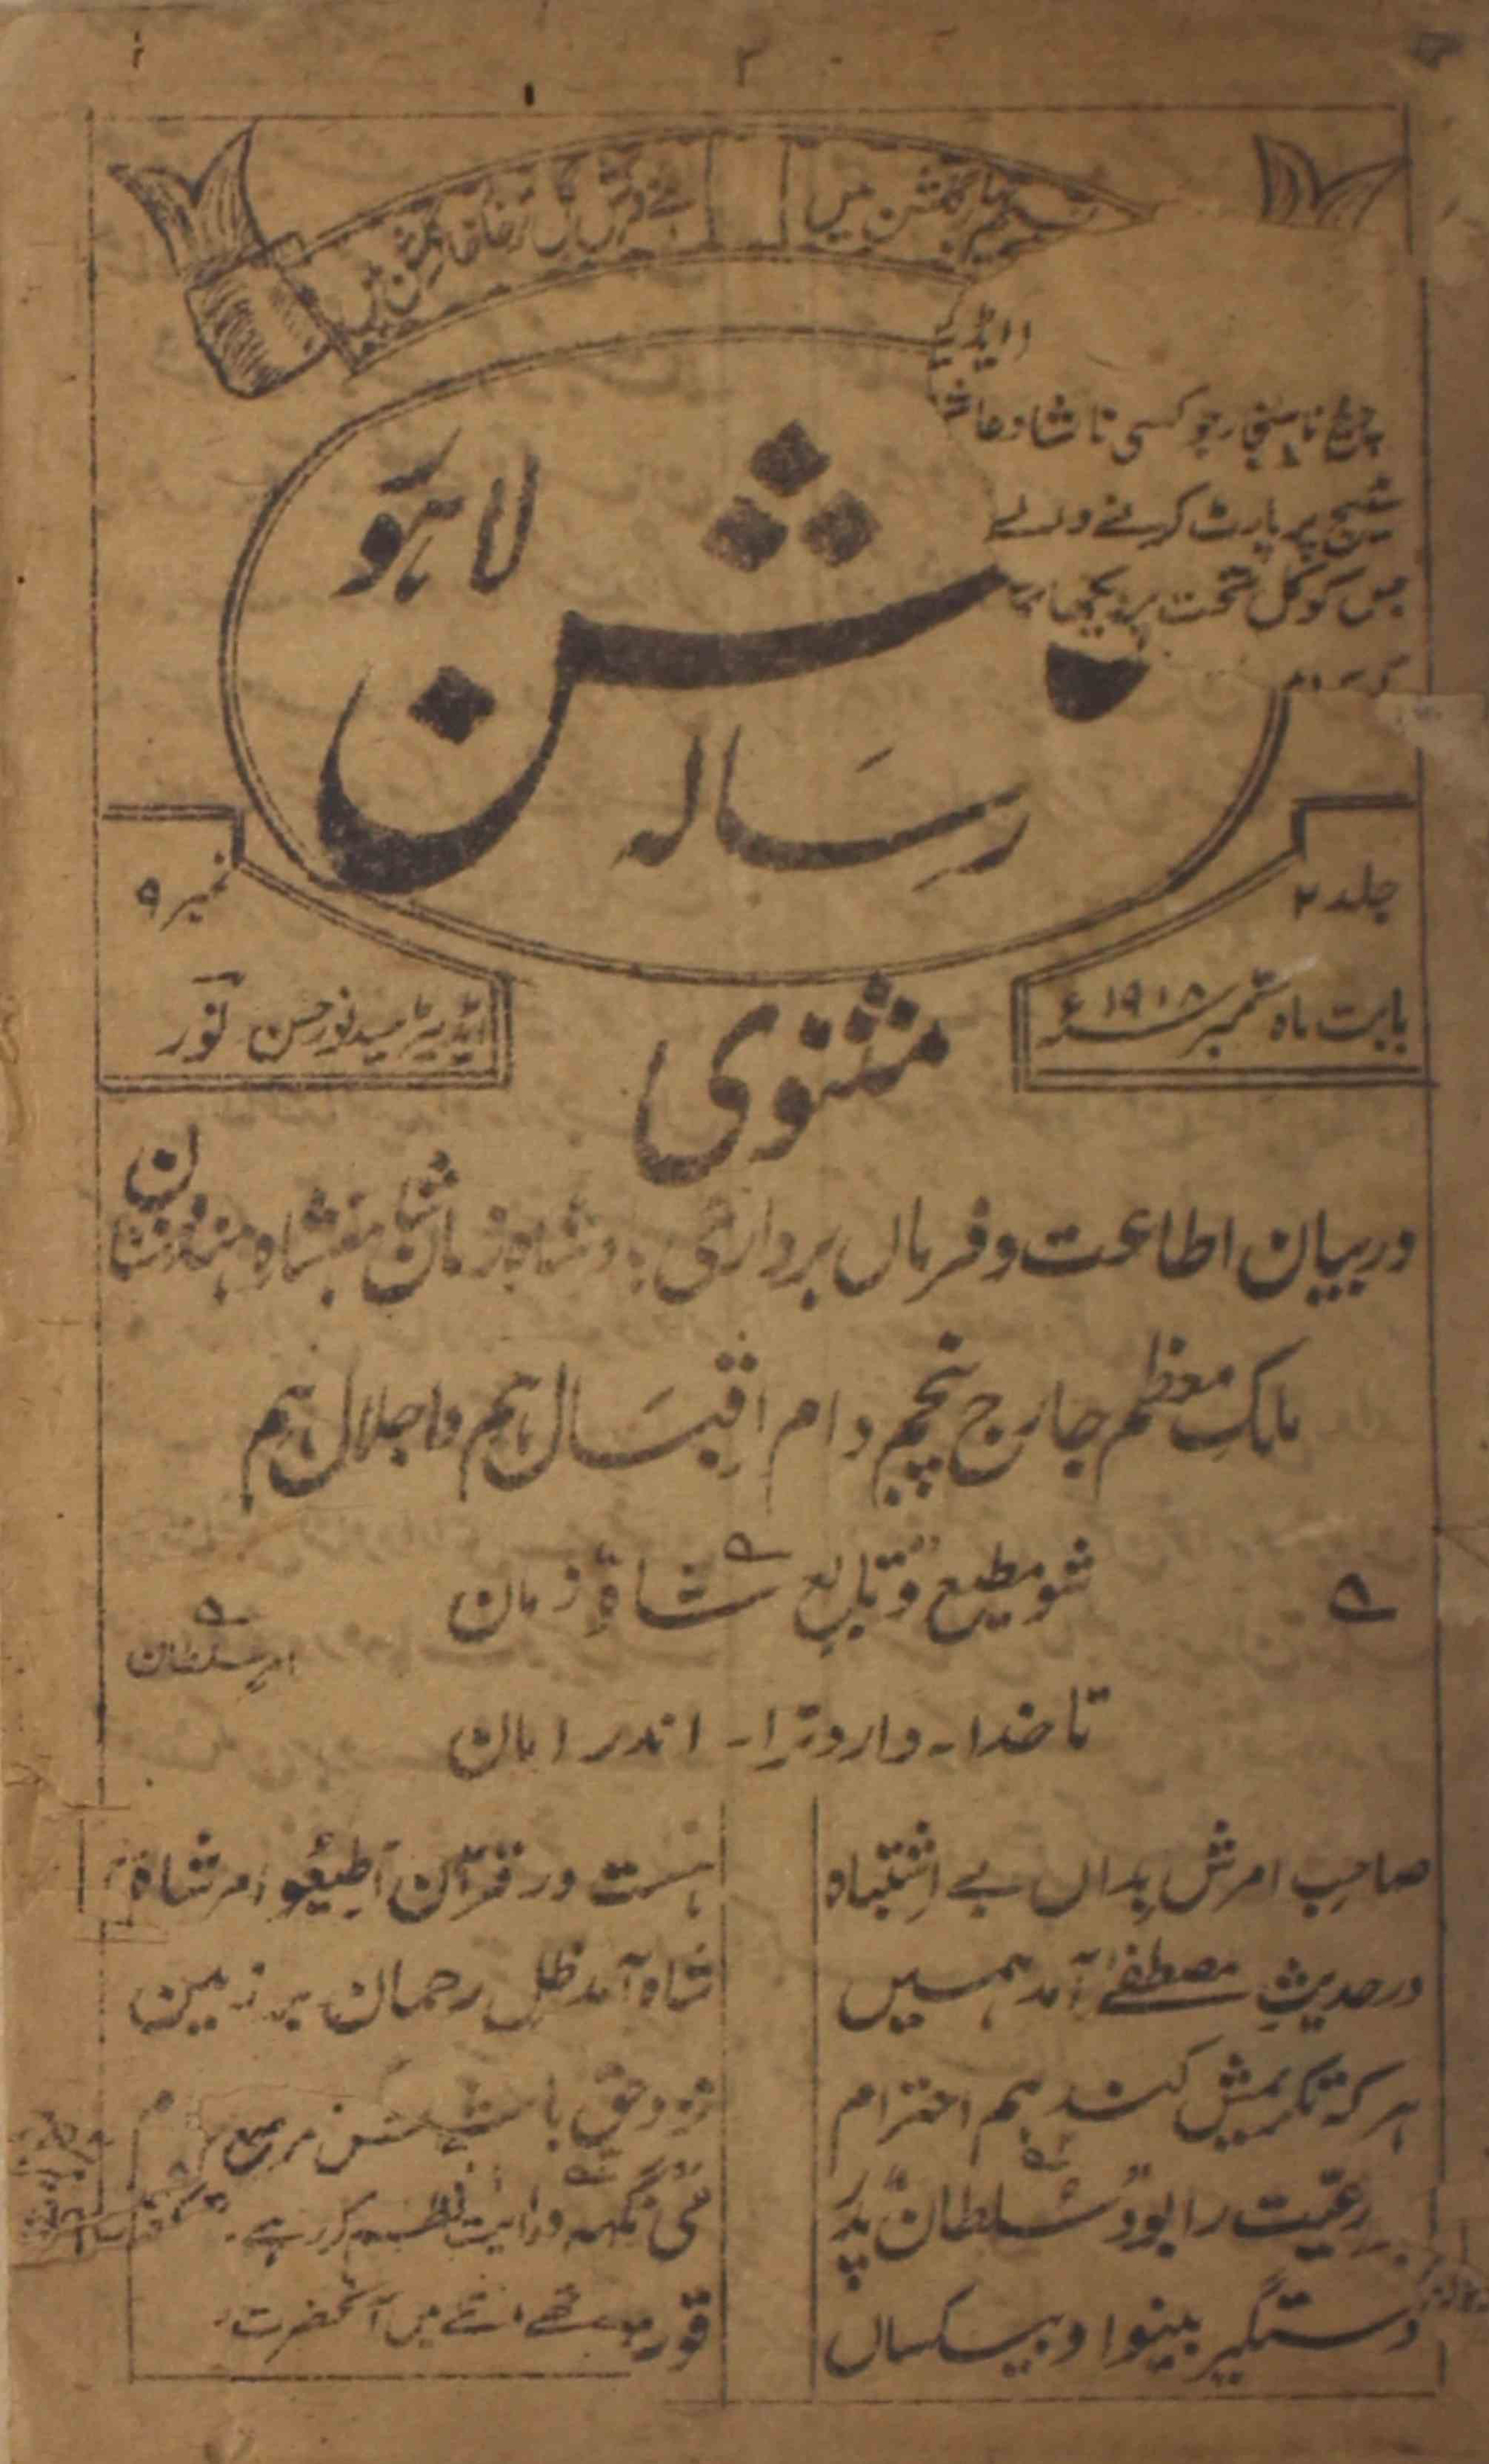 ۲
میں
میں
چرخ ناہنجار جو کسی ناشاد
سٹیج پر پارٹ کرنے والے
جس کو کل تخت پر
شن
لاہو
رسالہ
جلد ۲
نمبر ۹
بابت ماہ ستمبر سنہ ۱۹۱۸ء
ایڈیٹر سید نور حسن نور
مثنوی
در بیان اطاعت و فرماں برداری بادشاہ زمان شاہنشاہ ہندوستان
مالک معظم جارج پنجم دام اقبالہم واجلالہم
شو مطیع و تابع شاہ زمان
امر سلطان
تا خدا۔ دارد ترا۔ اندر امان
صاحب امرش بداں بے اشتباہ
ہست در قرآن اطیعو امر شاہ
در حدیث مصطفےٰ آمد ہمیں
شاہ آمد ظل رحمان بر زمین
ہر کہ تکریمش کند ہم احترام
نزد حق باشد
رعیت را بود سلطان پدر
می نگہدارد
کر رہے
دستگیر بینوا و بیکساں
قور
تھے اتنے میں آنحضرت